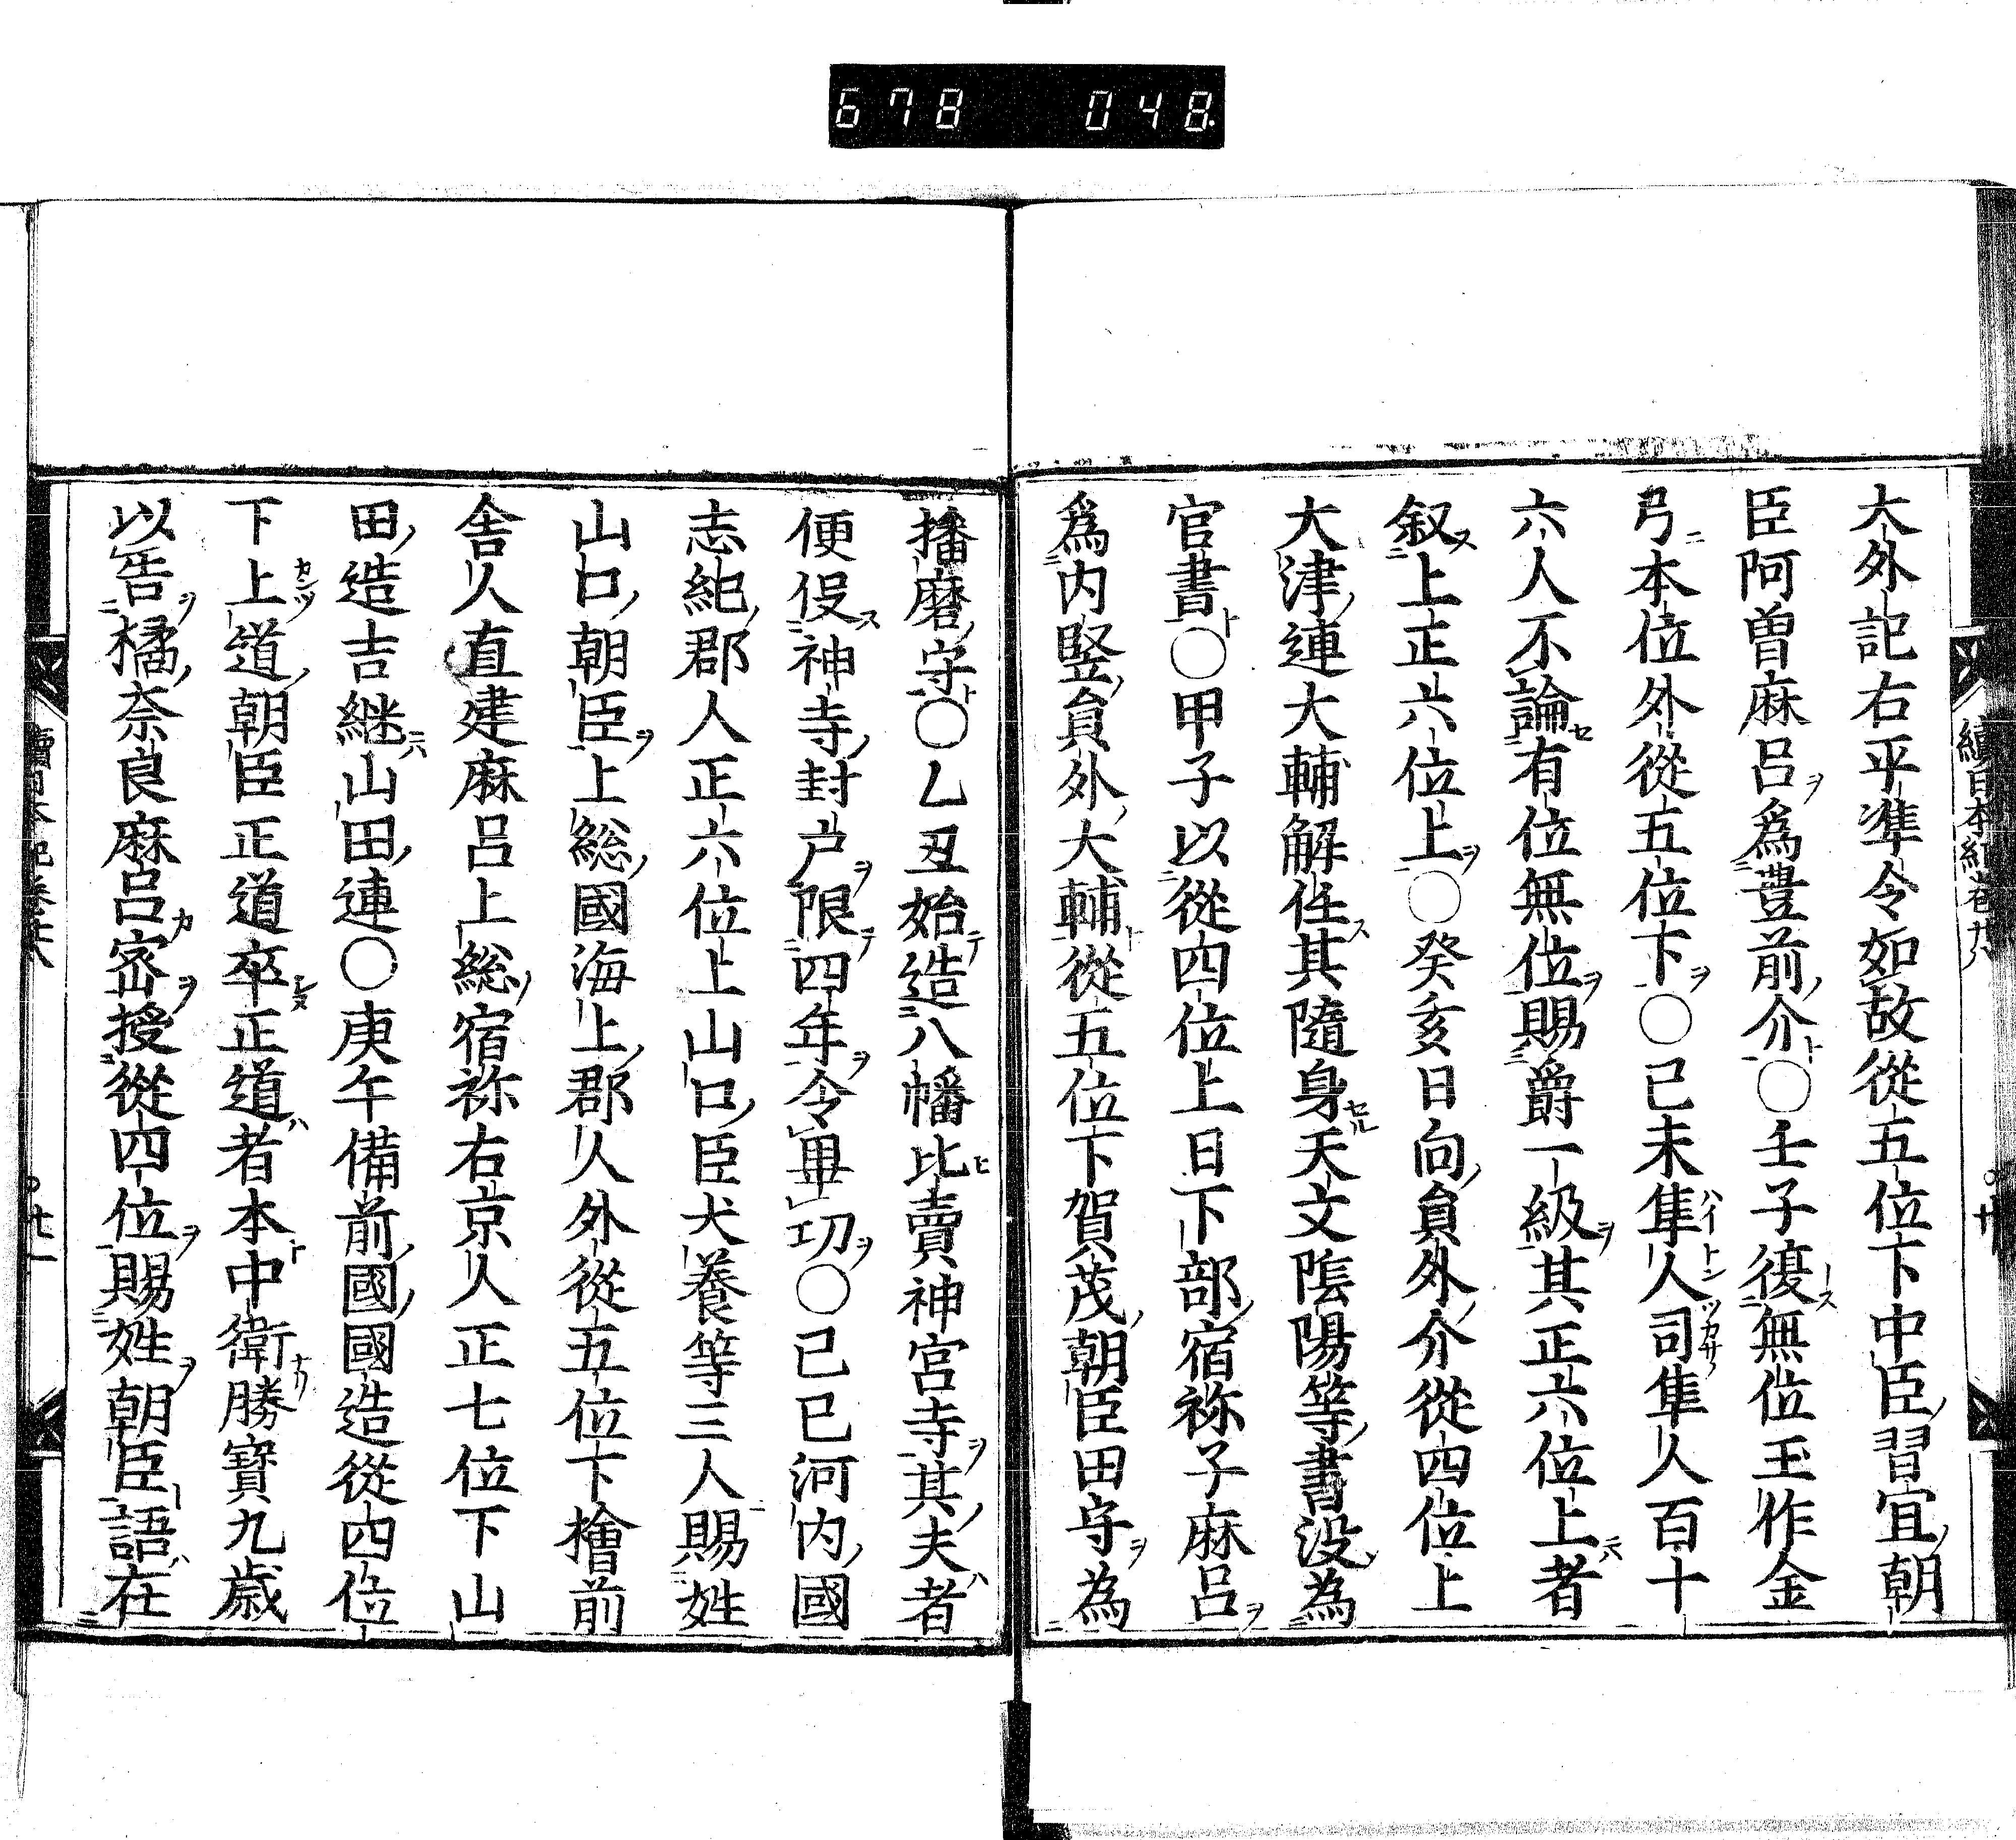 678 048.
大外記右平準令如故從五位下中臣習宜朝
臣阿曽麻呂爲豊前介〇壬子復無位王作金
弓本位外從五位下〇己未隼人司隼人百十
六人不論有位無位賜爵一級其正六位上者
叙上正六位上〇癸亥日向員外介從四位上
大津連大輔解任其隨身天文陰陽等書没為
官書〇甲子以從四位上日下部宿祢子麻呂
爲内竪員外大輔從五位下賀茂朝臣田守為
播磨守〇乙丑始造八幡比賣神宮寺其夫者
便役神寺封戸限四年令畢功〇己巳河内國
志紀郡人正六位上山口臣犬養等三人賜姓
山口朝臣上総國海上郡人外從五位下檜前
舎人直建麻呂上総宿祢右京人正七位下山
田造吉継山田連〇庚午備前國國造從四位
下上道朝臣正道卒正道者本中衛勝寳九歳
以告橘奈良麻呂宻授從四位賜姓朝臣語在